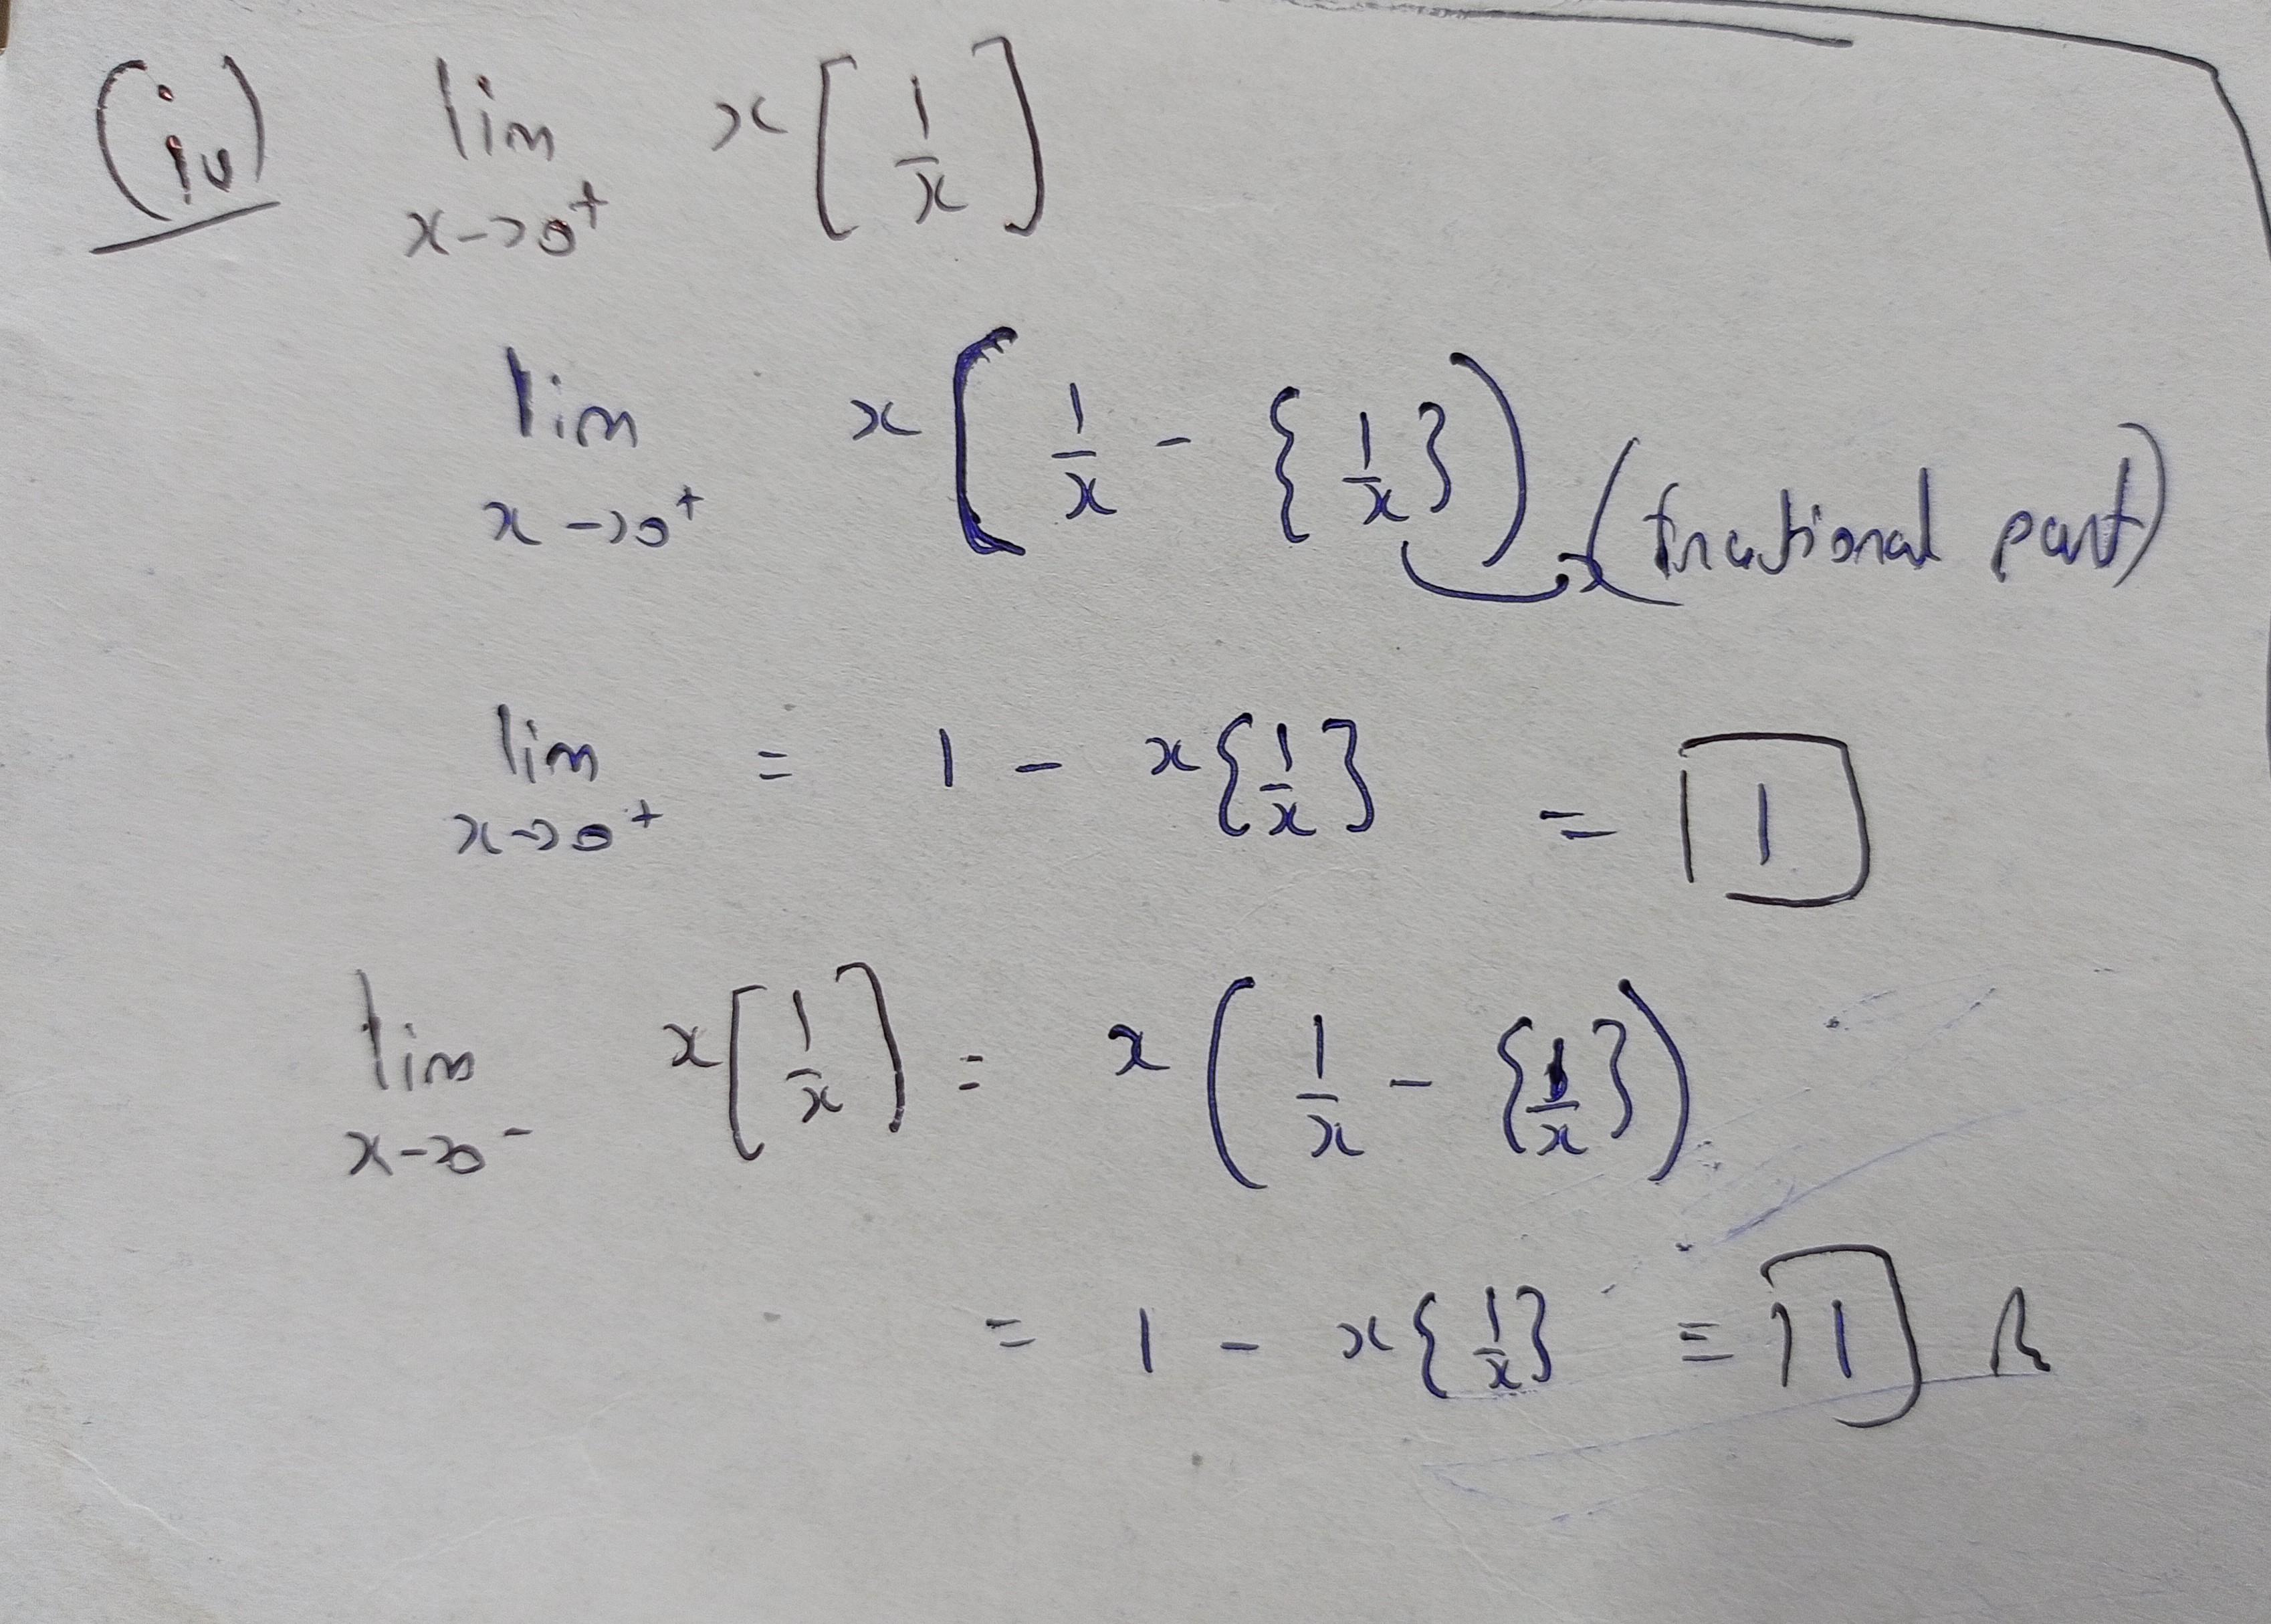 (iv) lim x→0⁺ x[1/x]
lim x→0⁺ x(1/x - {1/x}) (fractional part)
lim x→0⁺ = 1 - x{1/x} = 1
lim x→0⁻ x[1/x] = x(1/x - {1/x})
= 1 - x{1/x} = 1